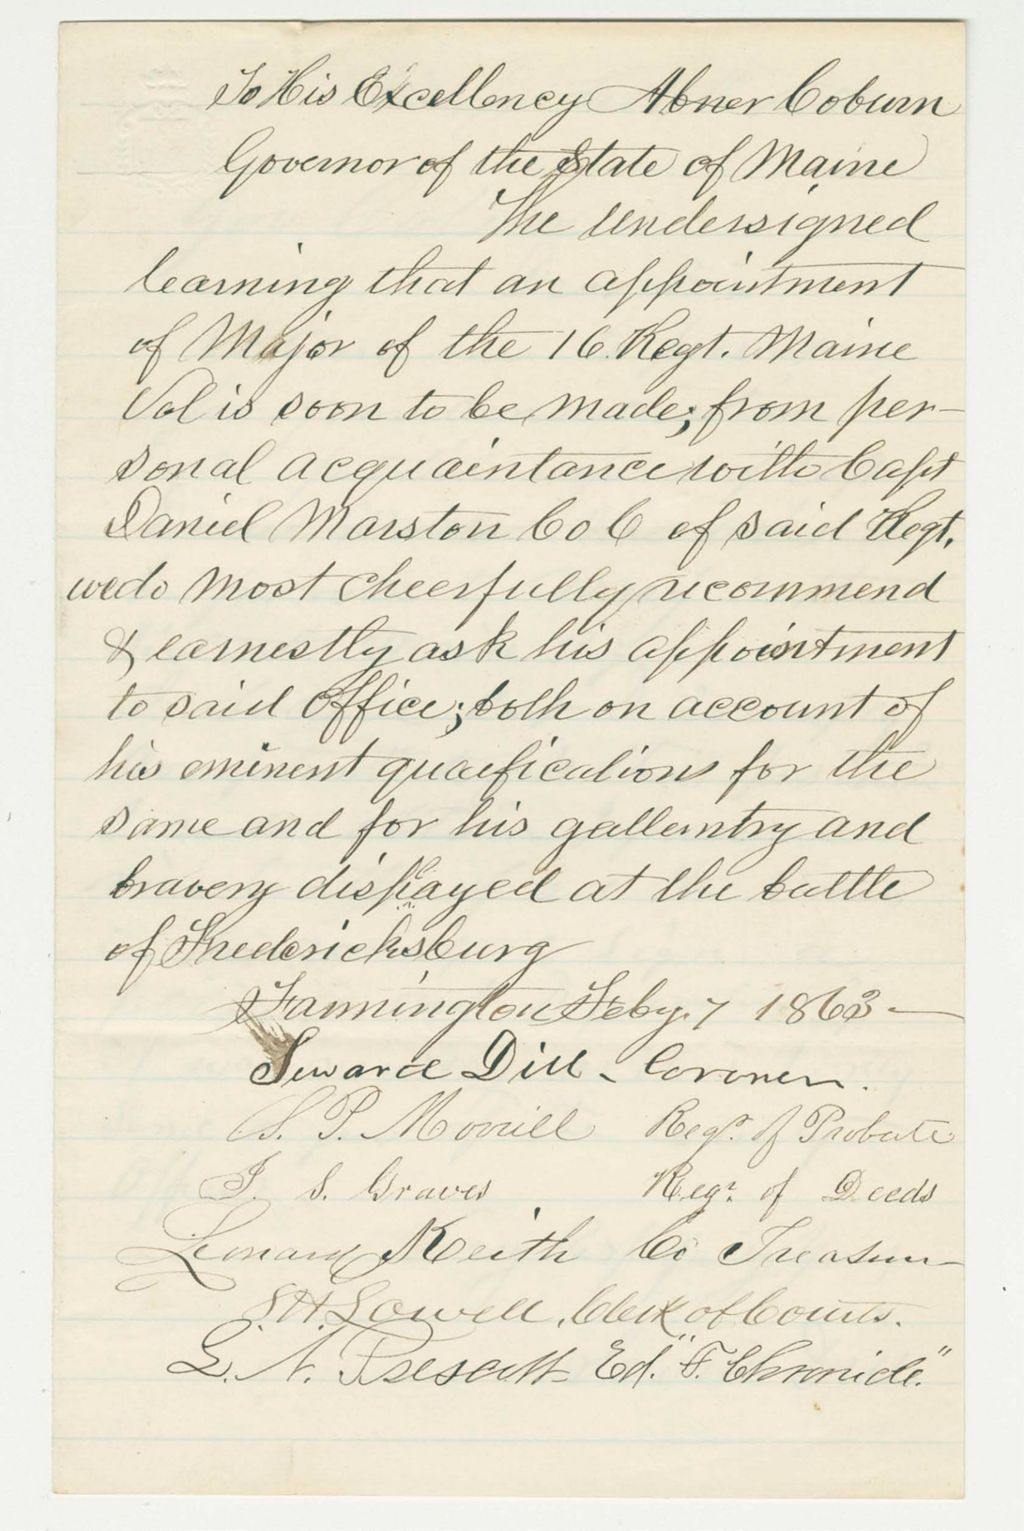 To His Excellency Abner Coburn
Governor of the State of Maine
The undersigned
learning that an appointment
of Major of the 16 Regt. Maine
Vol is soon to be made; from per-
sonal acquaintance with Capt
Daniel Marston Co C of said Regt.
we do most cheerfully recommend
& earnestly ask his appointment
to said office; both on account of
his eminent quaifications for the
same and for his gallantry and
bravery displayed at the battle
of Fredericksburg
Farmington Feby. 7 1863 -
Seward Dill - Coroner.
S. P. Morrill Regr. of Probate
J. S. Graves Regr. of Deeds
Leonard Keith Co Treasurer
S. H. Lowell, Clerk of Courts.
L. N. Prescott Ed. "F. Chronicle."